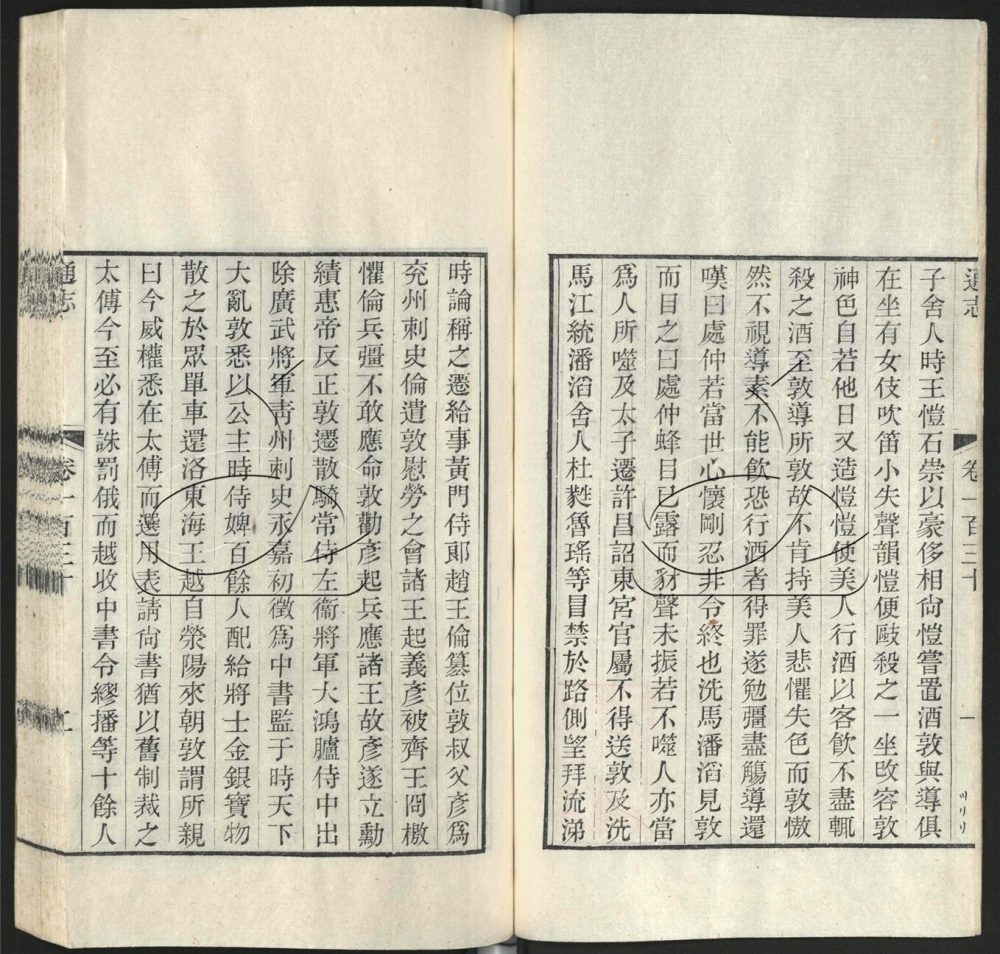 通志
卷一百三十
一
子舍人時王愷石崇以豪侈相尙愷嘗置酒敦與導俱
在坐有女伎吹笛小失聲韻愷便毆殺之一坐改容敦
神色自若他日又造愷愷使美人行酒以客飲不盡輒
殺之酒至敦導所敦故不肯持美人悲懼失色而敦慠
然不視導素不能飲恐行酒者得罪遂勉彊盡觴導還
嘆曰處仲若當世心懷剛忍非令終也洗馬潘滔見敦
而目之曰處仲蜂目已露而豺聲未振若不噬人亦當
爲人所噬及太子遷許昌詔東宮官屬不得送敦及洗
馬江統潘滔舍人杜蕤魯瑤等冒禁於路側望拜流涕
時論稱之遷給事黃門侍郎趙王倫篡位敦叔父彥爲
兖州刺史倫遣敦慰勞之會諸王起義彥被齊王冏檄
懼倫兵彊不敢應命敦勸彥起兵應諸王故彥遂立勳
績惠帝反正敦遷散騎常侍左衞將軍大鴻臚侍中出
除廣武將軍靑州刺史永嘉初徵爲中書監于時天下
大亂敦悉以公主時侍婢百餘人配給將士金銀寶物
散之於眾單車還洛東海王越自滎陽來朝敦謂所親
曰今威權悉在太傅而選用表請尙書猶以舊制裁之
太傅今至必有誅罰俄而越收中書令繆播等十餘人
通志
卷一百三十